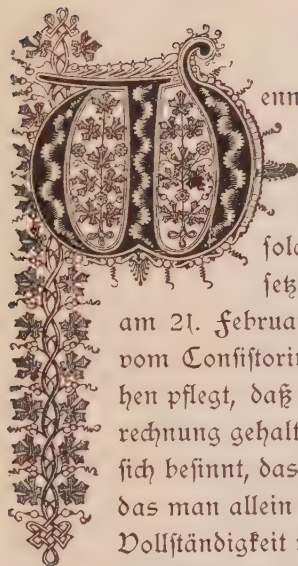 Wenn
sold
setz
am 21. Februar
vom Consistorin
hen pflegt, daß
rechnung gehalt
sich besinnt, das
das man allein
Vollständigkeit